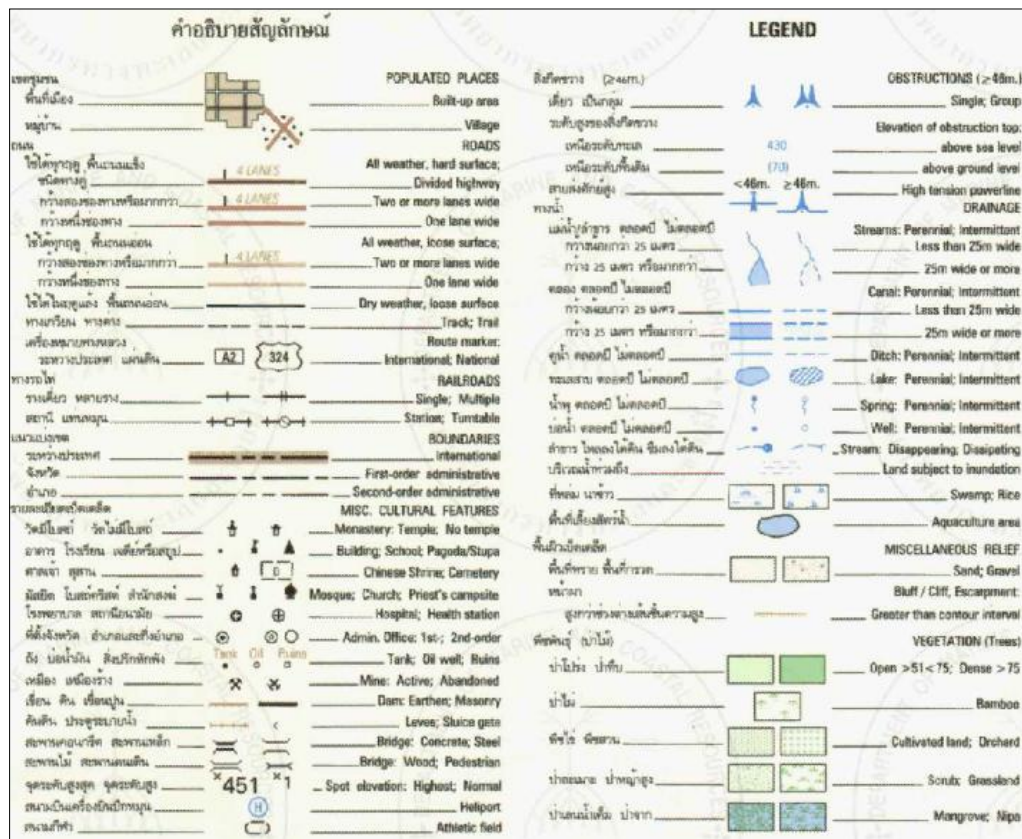 คำอธิบายสัญลักษณ์
เขตชุมชน POPULATED PLACES
พื้นที่เมือง Built-up area
หมู่บ้าน Village
ถนน ROADS
ใช้ได้ทุกฤดู พื้นถนนแข็ง 4 LANES All weather, hard surface;
ชนิดทางคู่ Divided highway
กว้างสองช่องทางหรือมากกว่า 4 LANES Two or more lanes wide
กว้างหนึ่งช่องทาง One lane wide
ใช้ได้ทุกฤดู พื้นถนนอ่อน All weather, loose surface;
กว้างสองช่องทางหรือมากกว่า 4 LANES Two or more lanes wide
กว้างหนึ่งช่องทาง One lane wide
ใช้ได้ในฤดูแล้ง พื้นถนนอ่อน Dry weather, loose surface
ทางเกวียน ทางต่าง Track; Trail
เครื่องหมายทางหลวง Route marker:
ระหว่างประเทศ แผ่นดิน A2 324 International; National
ทางรถไฟ RAILROADS
รางเดี่ยว หลายราง Single; Multiple
สถานี แท่นหมุน Station; Turntable
แนวแบ่งเขต BOUNDARIES
ระหว่างประเทศ International
จังหวัด First-order administrative
อำเภอ Second-order administrative
รายละเอียดเบ็ดเตล็ด MISC. CULTURAL FEATURES
วัดมีโบสถ์ วัดไม่มีโบสถ์ Monastery: Temple; No temple
อาคาร โรงเรียน เจดีย์หรือสถูป Building; School; Pagoda/Stupa
ศาลเจ้า สุสาน Chinese Shrine; Cemetery
มัสยิด โบสถ์คริสต์ สำนักสงฆ์ Mosque; Church; Priest's campsite
โรงพยาบาล สถานีอนามัย Hospital; Health station
ที่ตั้งจังหวัด อำเภอและกิ่งอำเภอ Admin. Office: 1st-; 2nd-order
ถัง บ่อน้ำมัน สิ่งปรักหักพัง Tank Oil Ruins Tank; Oil well; Ruins
เหมือง เหมืองร้าง Mine: Active; Abandoned
เขื่อน ดิน เขื่อนปูน Dam: Earthen; Masonry
คันดิน ประตูระบายน้ำ Levee; Sluice gate
สะพานคอนกรีต สะพานเหล็ก Bridge: Concrete; Steel
สะพานไม้ สะพานคนเดิน Bridge: Wood; Pedestrian
จุดระดับสูงสุด จุดระดับสูง 451 1 Spot elevation: Highest; Normal
สนามบินเครื่องบินปีกหมุน H Heliport
สนามกีฬา Athletic field
LEGEND
สิ่งกีดขวาง (≥46m.) OBSTRUCTIONS (≥46m.)
เดี่ยว เป็นกลุ่ม Single; Group
ระดับสูงของสิ่งกีดขวาง Elevation of obstruction top:
เหนือระดับทะเล 430 above sea level
เหนือระดับพื้นดิน (70) above ground level
สายส่งศักย์สูง <46m. ≥46m. High tension powerline
ทางน้ำ DRAINAGE
แม่น้ำลำธาร ตลอดปี ไม่ตลอดปี Streams: Perennial; Intermittent
กว้างน้อยกว่า 25 เมตร Less than 25m wide
กว้าง 25 เมตร หรือมากกว่า 25m wide or more
คลอง ตลอดปี ไม่ตลอดปี Canal: Perennial; Intermittent
กว้างน้อยกว่า 25 เมตร Less than 25m wide
กว้าง 25 เมตร หรือมากกว่า 25m wide or more
คูน้ำ ตลอดปี ไม่ตลอดปี Ditch: Perennial; Intermittent
ทะเลสาบ ตลอดปี ไม่ตลอดปี Lake: Perennial; Intermittent
น้ำพุ ตลอดปี ไม่ตลอดปี Spring: Perennial; Intermittent
บ่อน้ำ ตลอดปี ไม่ตลอดปี Well: Perennial; Intermittent
ลำธาร ไหลลงใต้ดิน ซึมลงใต้ดิน Stream: Disappearing; Dissipating
บริเวณน้ำท่วมถึง Land subject to inundation
ที่หล่ม นาข้าว Swamp; Rice
พื้นที่เลี้ยงสัตว์น้ำ Aquaculture area
พื้นผิวเบ็ดเตล็ด MISCELLANEOUS RELIEF
พื้นที่ทราย พื้นที่กรวด Sand; Gravel
หน้าผา Bluff / Cliff, Escarpment:
สูงกว่าช่วงต่างเส้นชั้นความสูง Greater than contour interval
พืชพันธุ์ (ป่าไม้) VEGETATION (Trees)
ป่าโปร่ง ป่าทึบ Open >51<75; Dense >75
ป่าไผ่ Bamboo
พืชไร่ พืชสวน Cultivated land; Orchard
ป่าละเมาะ ป่าหญ้าสูง Scrub; Grassland
ป่าเลนน้ำเค็ม ป่าจาก Mangrove; Nipa